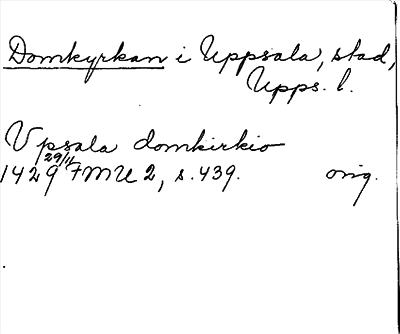 Domkyrkan i Uppsala, stad,
Upps. l.
Vpsala domkirkio
29/11
1429 FMU 2, s. 439. orig.